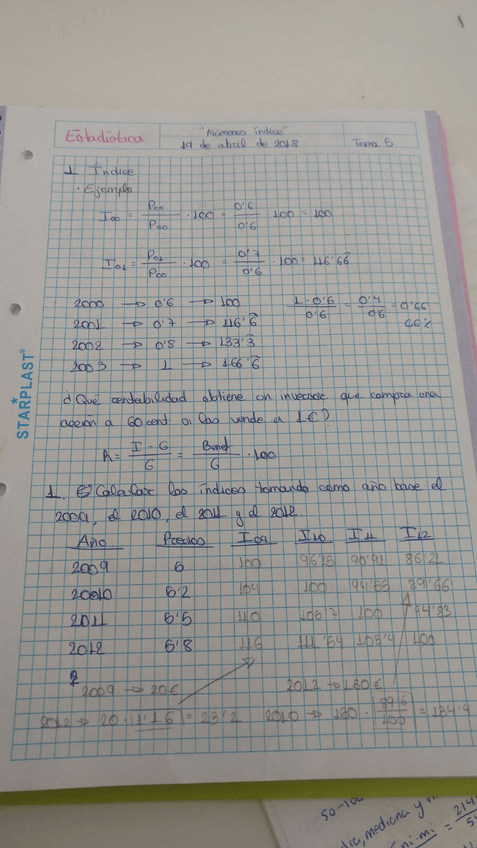 Estadística
"Números índice"
19 de abril de 2018
Tema 5
1. Índice
· Ejemplo
I00 = P00/P00 · 100 = 0'6/0'6 · 100 = 100
I01 = P01/P00 · 100 = 0'7/0'6 · 100 = 116'66
2000 → 0'6 → 100
1-0'6/0'6 = 0'4/0'6 = 0'66
66%
2001 → 0'7 → 116'6
2002 → 0'8 → 133'3
2003 → 1 → 166'6
¿Qué rentabilidad obtiene un inversor que compra una
acción a 60 cent si las vende a 1€?
R = I-G/G = Benef/G · 100
1. Calcular los índices tomando como año base el
2009, el 2010, el 2011 y el 2012.
Año Precios I09 I10 I11 I12
2009 5 100 96'15 90'91 86'21
20010 5'2 104 100 94'55 89'66
2011 5'5 110 105'7 100 94'83
2012 5'8 116 111'54 105'4 100
2009 → 20€
2012 → 150€
2012 → 20 · 1'16 = 23'2
2010 → 150 · /100 = 134'9
STARPLAST
50-100
mediana y
ni·mi